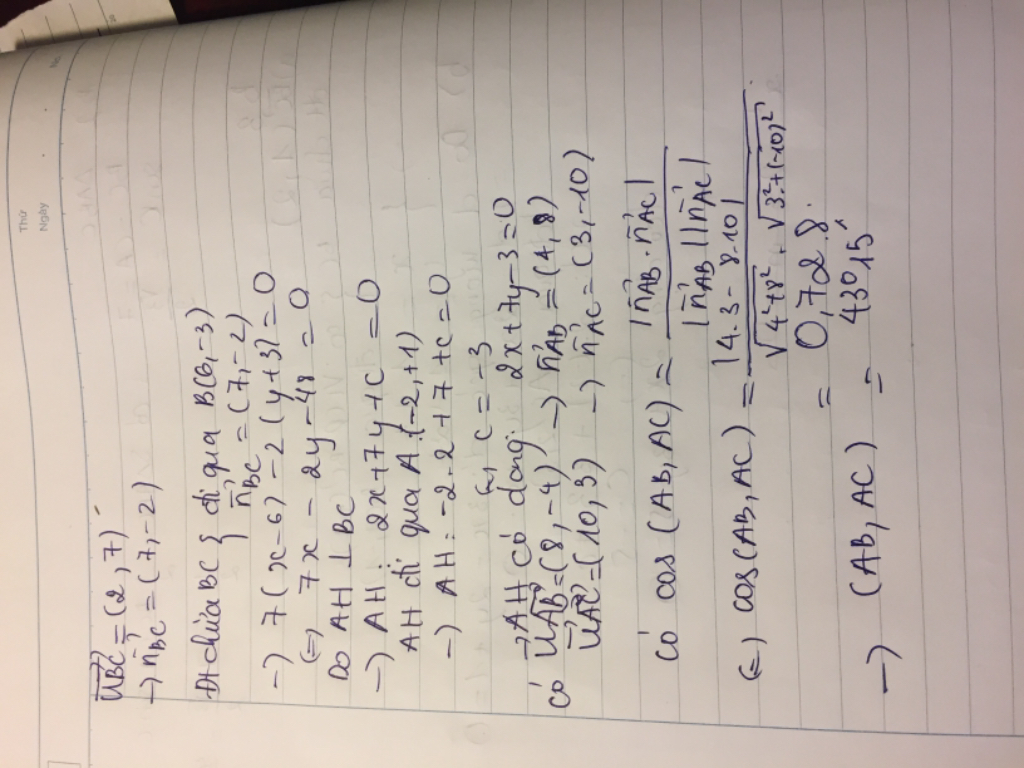 Thứ
Ngày
No.
u⃗BC = (2, 7)
→ n⃗BC = (7, -2)
Đt chứa BC { đi qua B(6, -3)
n⃗BC = (7, -2)
→ 7(x-6) - 2(y+3) = 0
(=) 7x - 2y - 48 = 0
Do AH ⊥ BC
→ AH: 2x + 7y + c = 0
AH đi qua A(-2, +1)
→ AH: -2.2 + 7 + c = 0
(=) c = -3
→ AH có dạng: 2x + 7y - 3 = 0
có u⃗AB = (8, -4) → n⃗AB = (4, 8)
u⃗AC = (10, 3) → n⃗AC = (3, -10)
Có cos(AB, AC) = |n⃗AB . n⃗AC| / |n⃗AB||n⃗AC|
(=) cos(AB, AC) = |4.3 - 8.10| / √4²+8² . √3²+(-10)²
= 0,728.
→ (AB, AC) = 43°15'